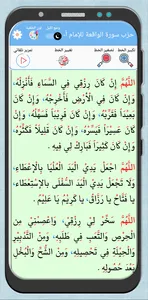 حزب سورة الواقعة للإمام ا
تكبير الخط
تصغير الخط
تغيير الخط
تمرير تلقائي
اللَّهُمَّ إِنْ كَانَ رِزْقِي فِي السَّمَاءِ فَأَنْزِلْهُ،
وَإِنْ كَانَ فِي الْأَرْضِ فَأَخْرِجْهُ، وَإِنْ كَانَ
عَسِيرًا فَيَسِّرْهُ، وَإِنْ كَانَ قَلِيلًا فَكَثِّرْهُ،
وَإِنْ كَانَ كَثِيرًا فَبَارِكْ لِي فِيهِ.
اللَّهُمَّ اجْعَلْ يَدِيَ الْيَدَ الْعُلْيَا بِالْإِعْطَاءِ،
وَلَا تَجْعَلْ يَدِيَ الْيَدَ السُّفْلَى بِالْإِسْتِعْطَاءِ،
يَا فَتَّاحُ يَا رَزَّاقُ، يَا كَرِيمُ يَا عَلِيمُ.
اللَّهُمَّ سَخِّرْ لِي رِزْقِي، وَاعْصِمْنِي مِنَ
الْحِرْصِ وَالتَّعَبِ فِي طَلَبِهِ، وَمِنَ التَّدْبِيرِ
وَالْحِيلَةِ فِي تَحْصِيلِهِ، وَمِنَ الشُّحِّ وَالْبُخْلِ
بَعْدَ حُصُولِهِ.